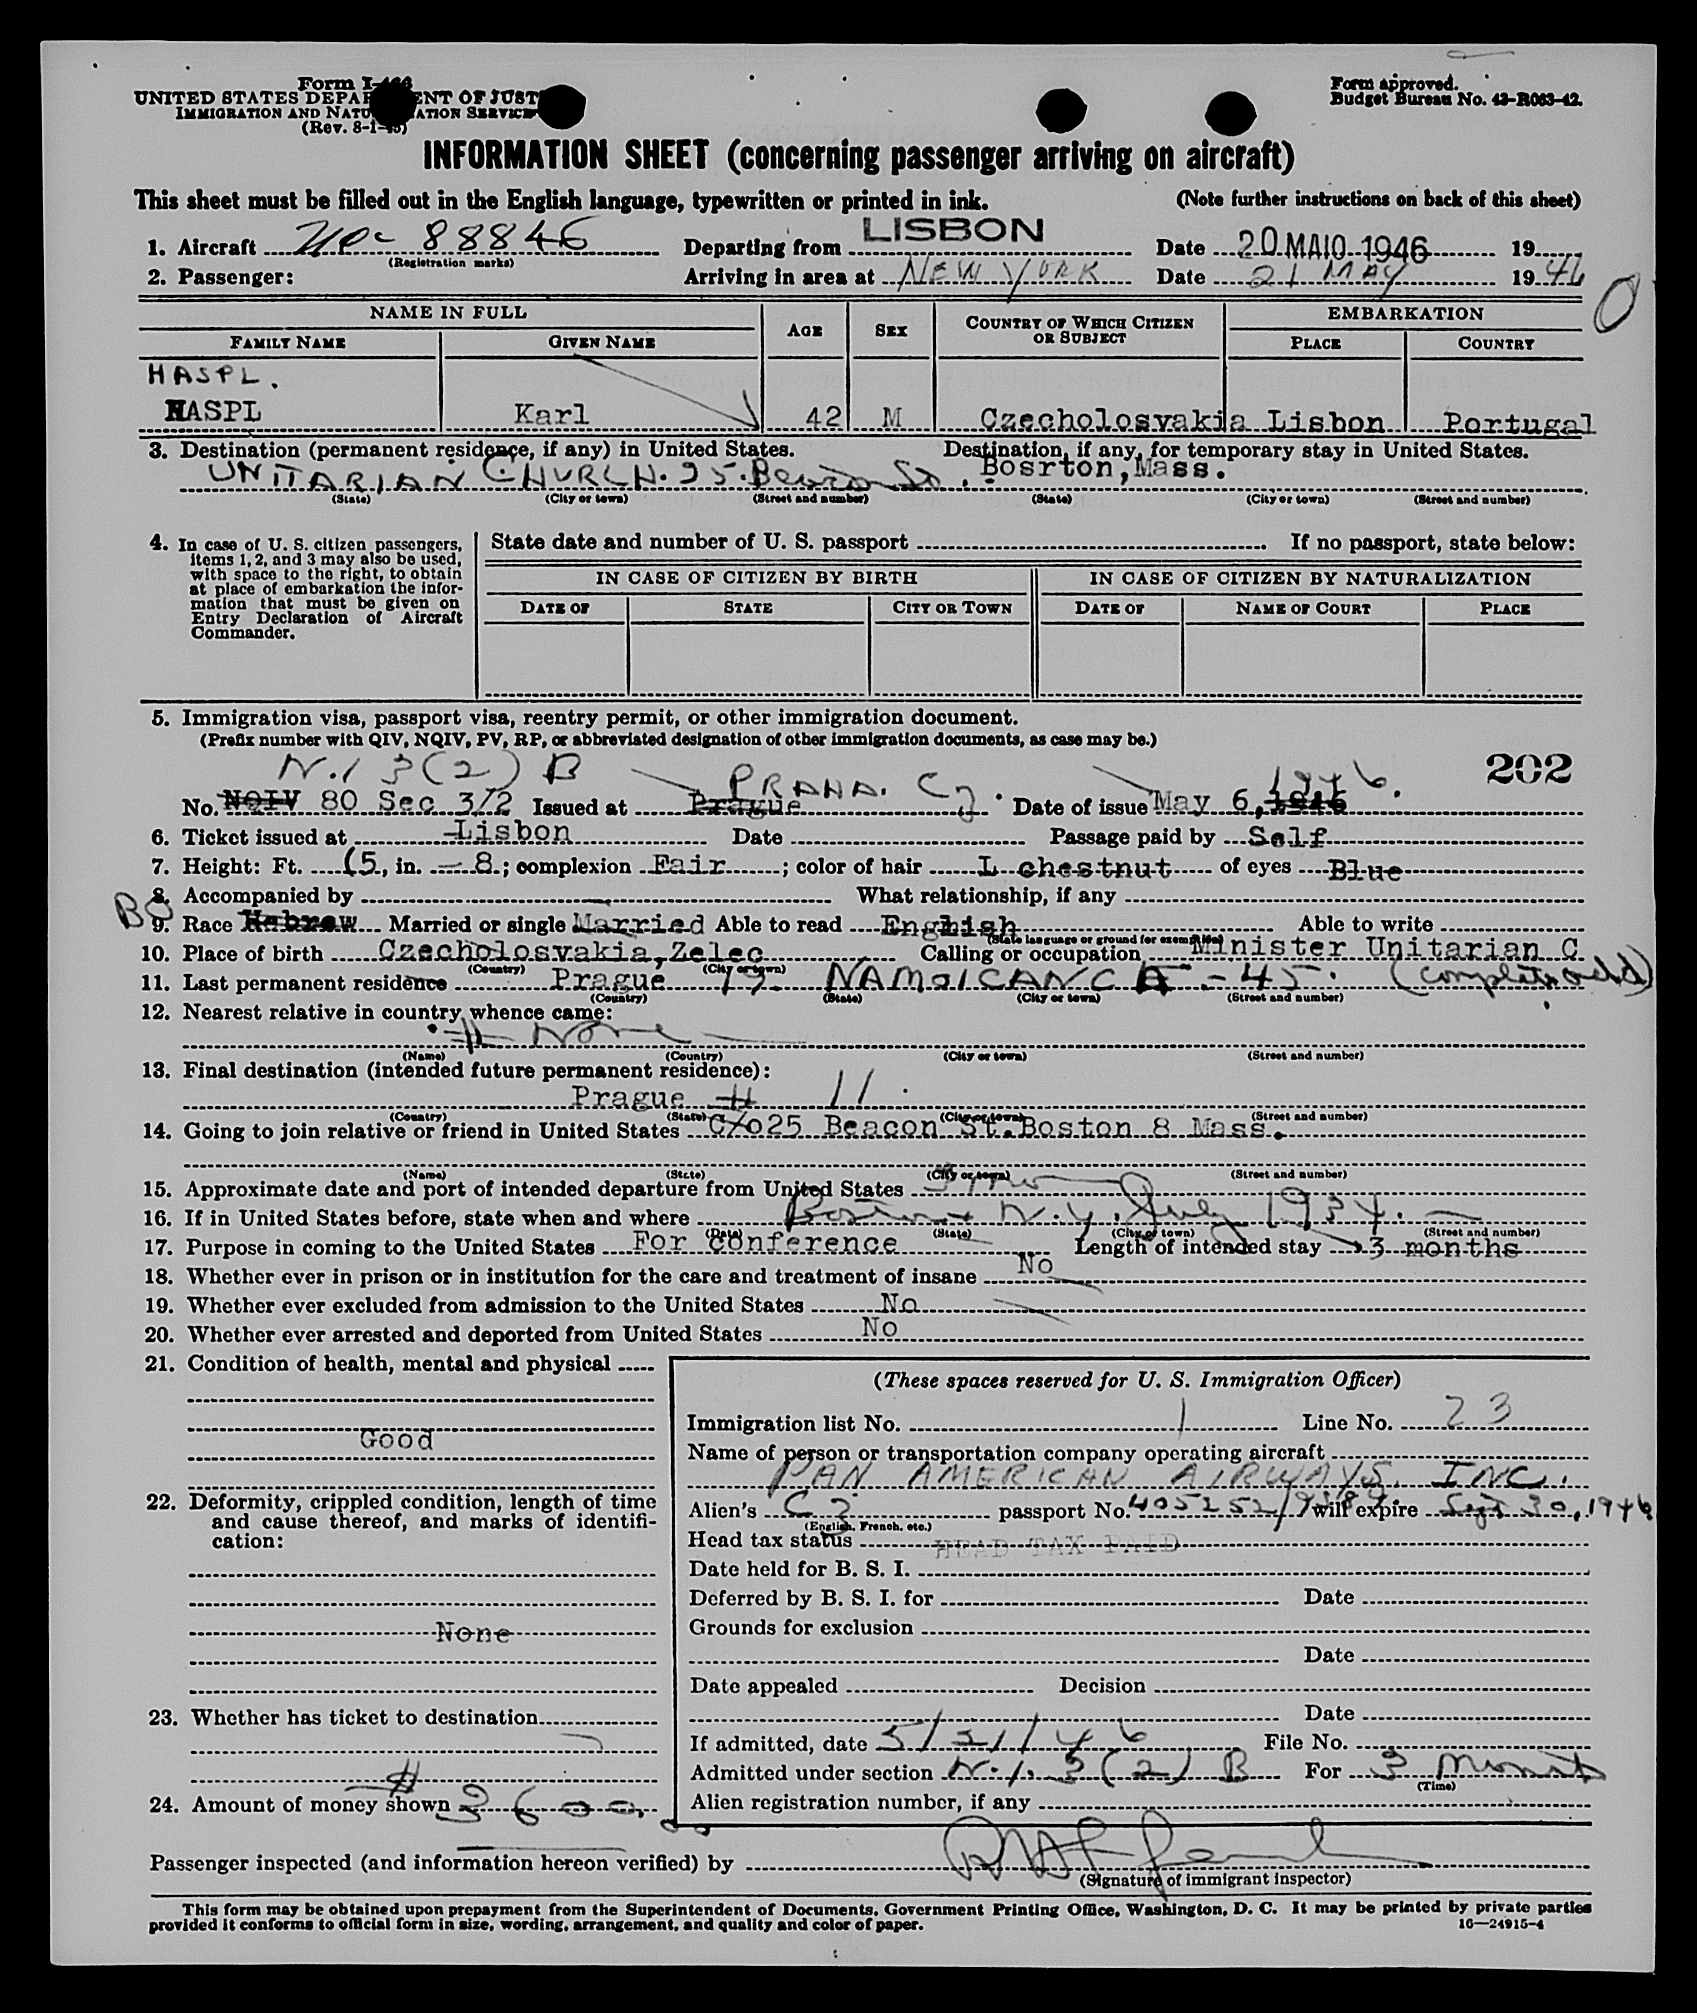 Form I-466
UNITED STATES DEPARTMENT OF JUSTICE
IMMIGRATION AND NATURALIZATION SERVICE
(Rev. 8-1-45)
Form approved.
Budget Bureau No. 43-R063-42.
INFORMATION SHEET (concerning passenger arriving on aircraft)
This sheet must be filled out in the English language, typewritten or printed in ink. (Note further instructions on back of this sheet)
1. Aircraft NC- 88846 Departing from LISBON Date 20 MAIO 1946 19
(Registration marks)
2. Passenger: Arriving in area at NEW YORK Date 21 MAY 1946
NAME IN FULL AGE SEX COUNTRY OF WHICH CITIZEN OR SUBJECT EMBARKATION
FAMILY NAME GIVEN NAME PLACE COUNTRY
HASPL.
HASPL Karl 42 M Czecholosvakia Lisbon Portugal
3. Destination (permanent residence, if any) in United States. Destination, if any, for temporary stay in United States.
UNITARIAN CHURCH. 25. Beacon St. Bosrton, Mass.
(State) (City or town) (Street and number) (State) (City or town) (Street and number)
4. In case of U. S. citizen passengers, items 1, 2, and 3 may also be used, with space to the right, to obtain at place of embarkation the information that must be given on Entry Declaration of Aircraft Commander.
State date and number of U. S. passport If no passport, state below:
IN CASE OF CITIZEN BY BIRTH IN CASE OF CITIZEN BY NATURALIZATION
DATE OF STATE CITY OR TOWN DATE OF NAME OF COURT PLACE
5. Immigration visa, passport visa, reentry permit, or other immigration document.
(Prefix number with QIV, NQIV, PV, RP, or abbreviated designation of other immigration documents, as case may be.)
N.I 3(2) B PRAHA. Cz. 1946. 202
No. NQIV 80 Sec 3/2 Issued at Prague Date of issue May 6, 1946
6. Ticket issued at Lisbon Date Passage paid by Self
7. Height: Ft. 5, in. 8; complexion Fair; color of hair L chestnut of eyes Blue
8. Accompanied by What relationship, if any
9. Race Hebrew Married or single Married Able to read Enghish Able to write
(State language or ground for exemption)
10. Place of birth Czecholosvakia, Zelec Calling or occupation Minister Unitarian C
(Country) (City or town)
11. Last permanent residence Prague
(Country) (State) (City or town) (Street and number)
12. Nearest relative in country whence came:
None
(Name) (Country) (City or town) (Street and number)
13. Final destination (intended future permanent residence):
Prague # 11
(Country) (State) (City or town) (Street and number)
14. Going to join relative or friend in United States C/o25 Beacon St. Boston 8 Mass.
(Name) (State) (City or town) (Street and number)
15. Approximate date and port of intended departure from United States
16. If in United States before, state when and where Boston + N.Y. July 1934.
(Date) (State) (City or town) (Street and number)
17. Purpose in coming to the United States For conference Length of intended stay 3 months
18. Whether ever in prison or in institution for the care and treatment of insane No
19. Whether ever excluded from admission to the United States No
20. Whether ever arrested and deported from United States No
21. Condition of health, mental and physical
Good
22. Deformity, crippled condition, length of time and cause thereof, and marks of identification:
None
23. Whether has ticket to destination
24. Amount of money shown $ 3600.00
(These spaces reserved for U. S. Immigration Officer)
Immigration list No. 1 Line No. 23
Name of person or transportation company operating aircraft
PAN AMERICAN AIRWAYS, INC.
Alien's Cz passport No. will expire Sept 30, 1946
(English, French, etc.)
Head tax status HEAD TAX PAID
Date held for B. S. I.
Deferred by B. S. I. for Date
Grounds for exclusion
Date
Date appealed Decision
Date
If admitted, date 5/21/46 File No.
Admitted under section N.I. 3(2) B For 3 Months
(Time)
Alien registration number, if any
Passenger inspected (and information hereon verified) by
(Signature of immigrant inspector)
This form may be obtained upon prepayment from the Superintendent of Documents, Government Printing Office, Washington, D. C. It may be printed by private parties
provided it conforms to official form in size, wording, arrangement, and quality and color of paper. 16—24915-4